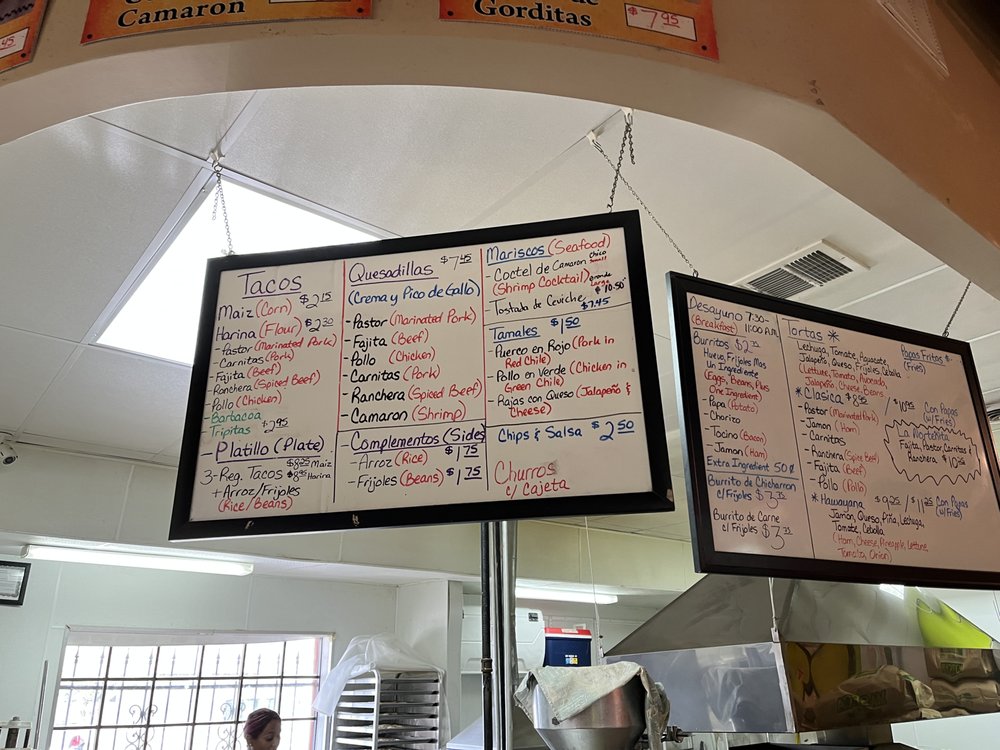 Camaron
Gorditas
$7.95
45
Tacos
Maiz (Corn) $2.15
Harina (Flour) $2.30
-Pastor (Marinated Pork)
-Carnitas (Pork)
-Fajita (Beef)
-Ranchera (Spiced Beef)
-Pollo (Chicken)
-Barbacoa
Tripitas $2.95
-Platillo (Plate)
3-Reg. Tacos $8.25 Maiz
$8.95 Harina
+Arroz/Frijoles
(Rice/Beans)
Quesadillas $7.45
(Crema y Pico de Gallo)
-Pastor (Marinated Pork)
-Fajita (Beef)
-Pollo (Chicken)
-Carnitas (Pork)
-Ranchera (Spiced Beef)
-Camaron (Shrimp)
-Complementos (Sides)
-Arroz (Rice) $1.75
-Frijoles (Beans) $1.75
Mariscos (Seafood)
-Coctel de Camaron Chico Small
(Shrimp Cocktail) Grande Large $10.50
Tostada de Ceviche $7.45
Tamales $1.50
-Puerco en Rojo (Pork in
Red Chile)
-Pollo en Verde (Chicken in
Green Chile)
-Rajas con Queso (Jalapeño &
Cheese)
Chips & Salsa $2.50
Churros
c/ Cajeta
Desayuno 7:30-
(Breakfast) 11:00 A.M.
Burritos $2.75
Huevo, Frijoles Mas
Un Ingrediente
(Eggs, Beans, Plus
One Ingredient)
-Papa (Potato)
-Chorizo
-Tocino (Bacon)
-Jamon (Ham)
Extra Ingredient 50¢
Burrito de Chicharron
c/ Frijoles $3.35
Burrito de Carne
c/ Frijoles $3.35
Tortas *
Lechuga, Tomate, Aguacate,
Jalapeño, Queso, Frijoles, Cebolla
(Lettuce, Tomato, Avocado,
Jalapeño, Cheese, Beans
Papas Fritas $
(Fries)
* Clasica $8.95 / $10.95 Con Papas
(w/ Fries)
-Pastor (Marinated Pork)
-Jamon (Ham)
-Carnitas
-Ranchera (Spice Beef)
-Fajita (Beef)
-Pollo (Pollo)
La Norteñita
Fajita, Pastor, Carnitas ó
Ranchera $10.25
* Hawayana $9.25 / $11.25 Con Papas
(w/ Fries)
Jamon, Queso, Piña, Lechuga,
Tomate, Cebolla
(Ham, Cheese, Pineapple, Lettuce,
Tomato, Onion)